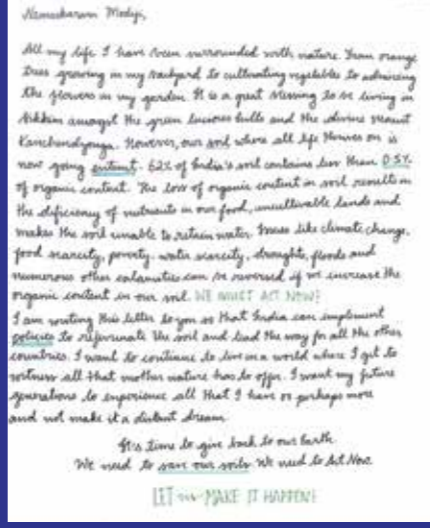 Namaskaram Modiji,
All my life I have been surrounded with nature. From orange
trees growing in my backyard to cultivating vegetables to admiring
the flowers in my garden. It is a great blessing to be living in
Sikkim amongst the green luscious hills and the divine mount
Kanchendzonga. However, our soil where all life thrives on is
now going extinct. 62% of India's soil contains less than 0.5%
of organic content. The loss of organic content in soil results in
the deficiency of nutrients in our food, uncultivable lands and
makes the soil unable to retain water. Issues like climate change,
food scarcity, poverty, water scarcity, droughts, floods and
numerous other calamities can be reversed if we increase the
organic content in our soil. WE MUST ACT NOW!
I am writing this letter to you so that India can implement
policies to rejuvenate the soil and lead the way for all the other
countries. I want to continue to live in a world where I get to
witness all that mother nature has to offer. I want my future
generations to experience all that I have or perhaps more
and not make it a distant dream.
It's time to give back to our Earth.
We need to save our soils. We need to Act Now.
LET us MAKE IT HAPPEN!